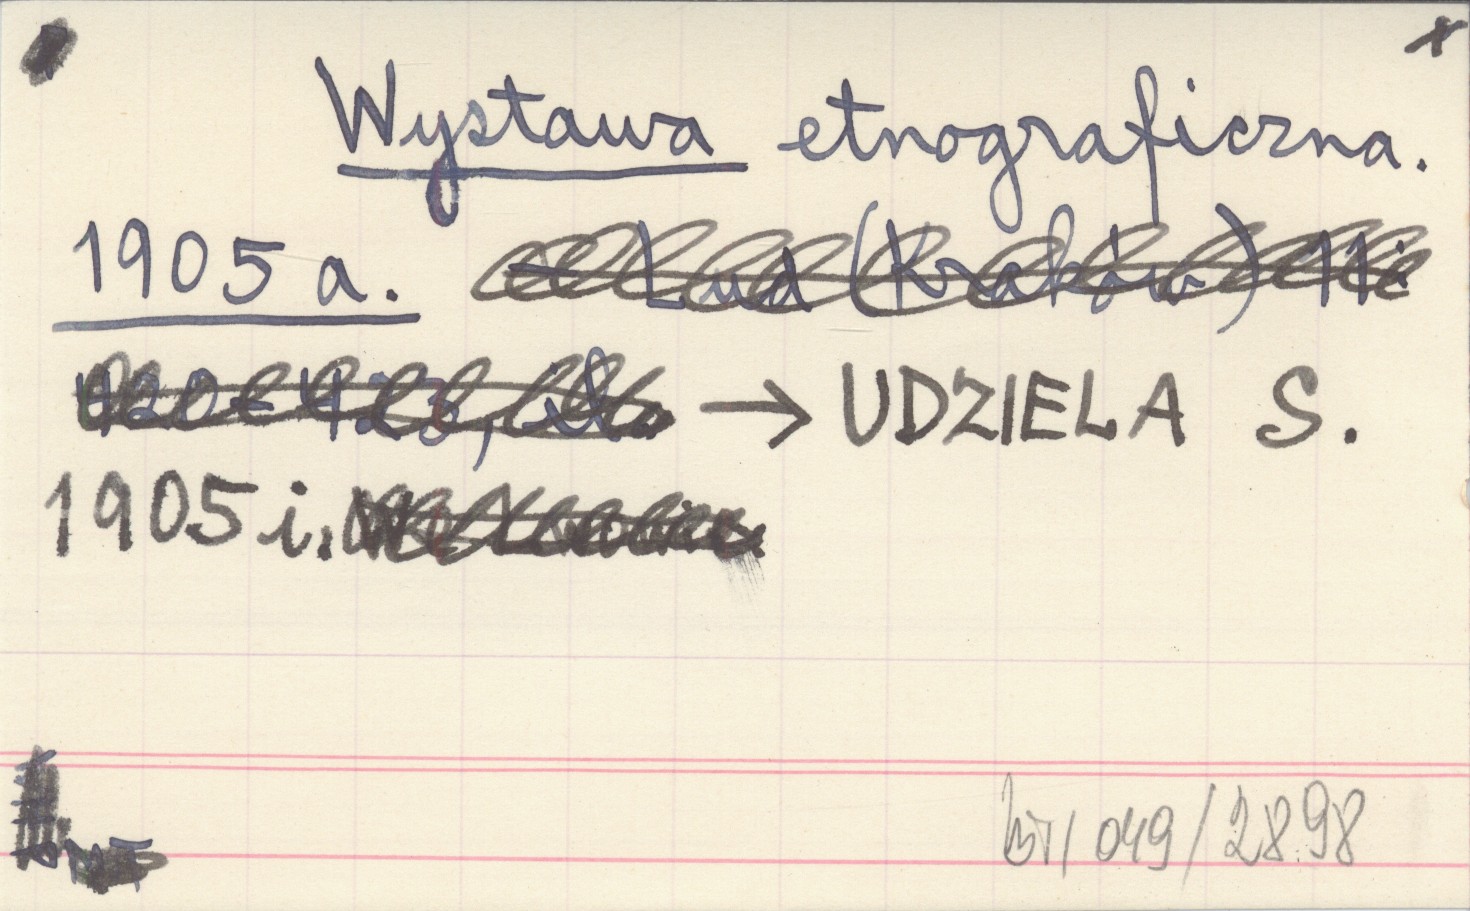 x
Wystawa etnograficzna.
1905 a. - Lud (Kraków) 11:
420-423, il. → UDZIELA S.
1905 i.
/ 049 / 2898